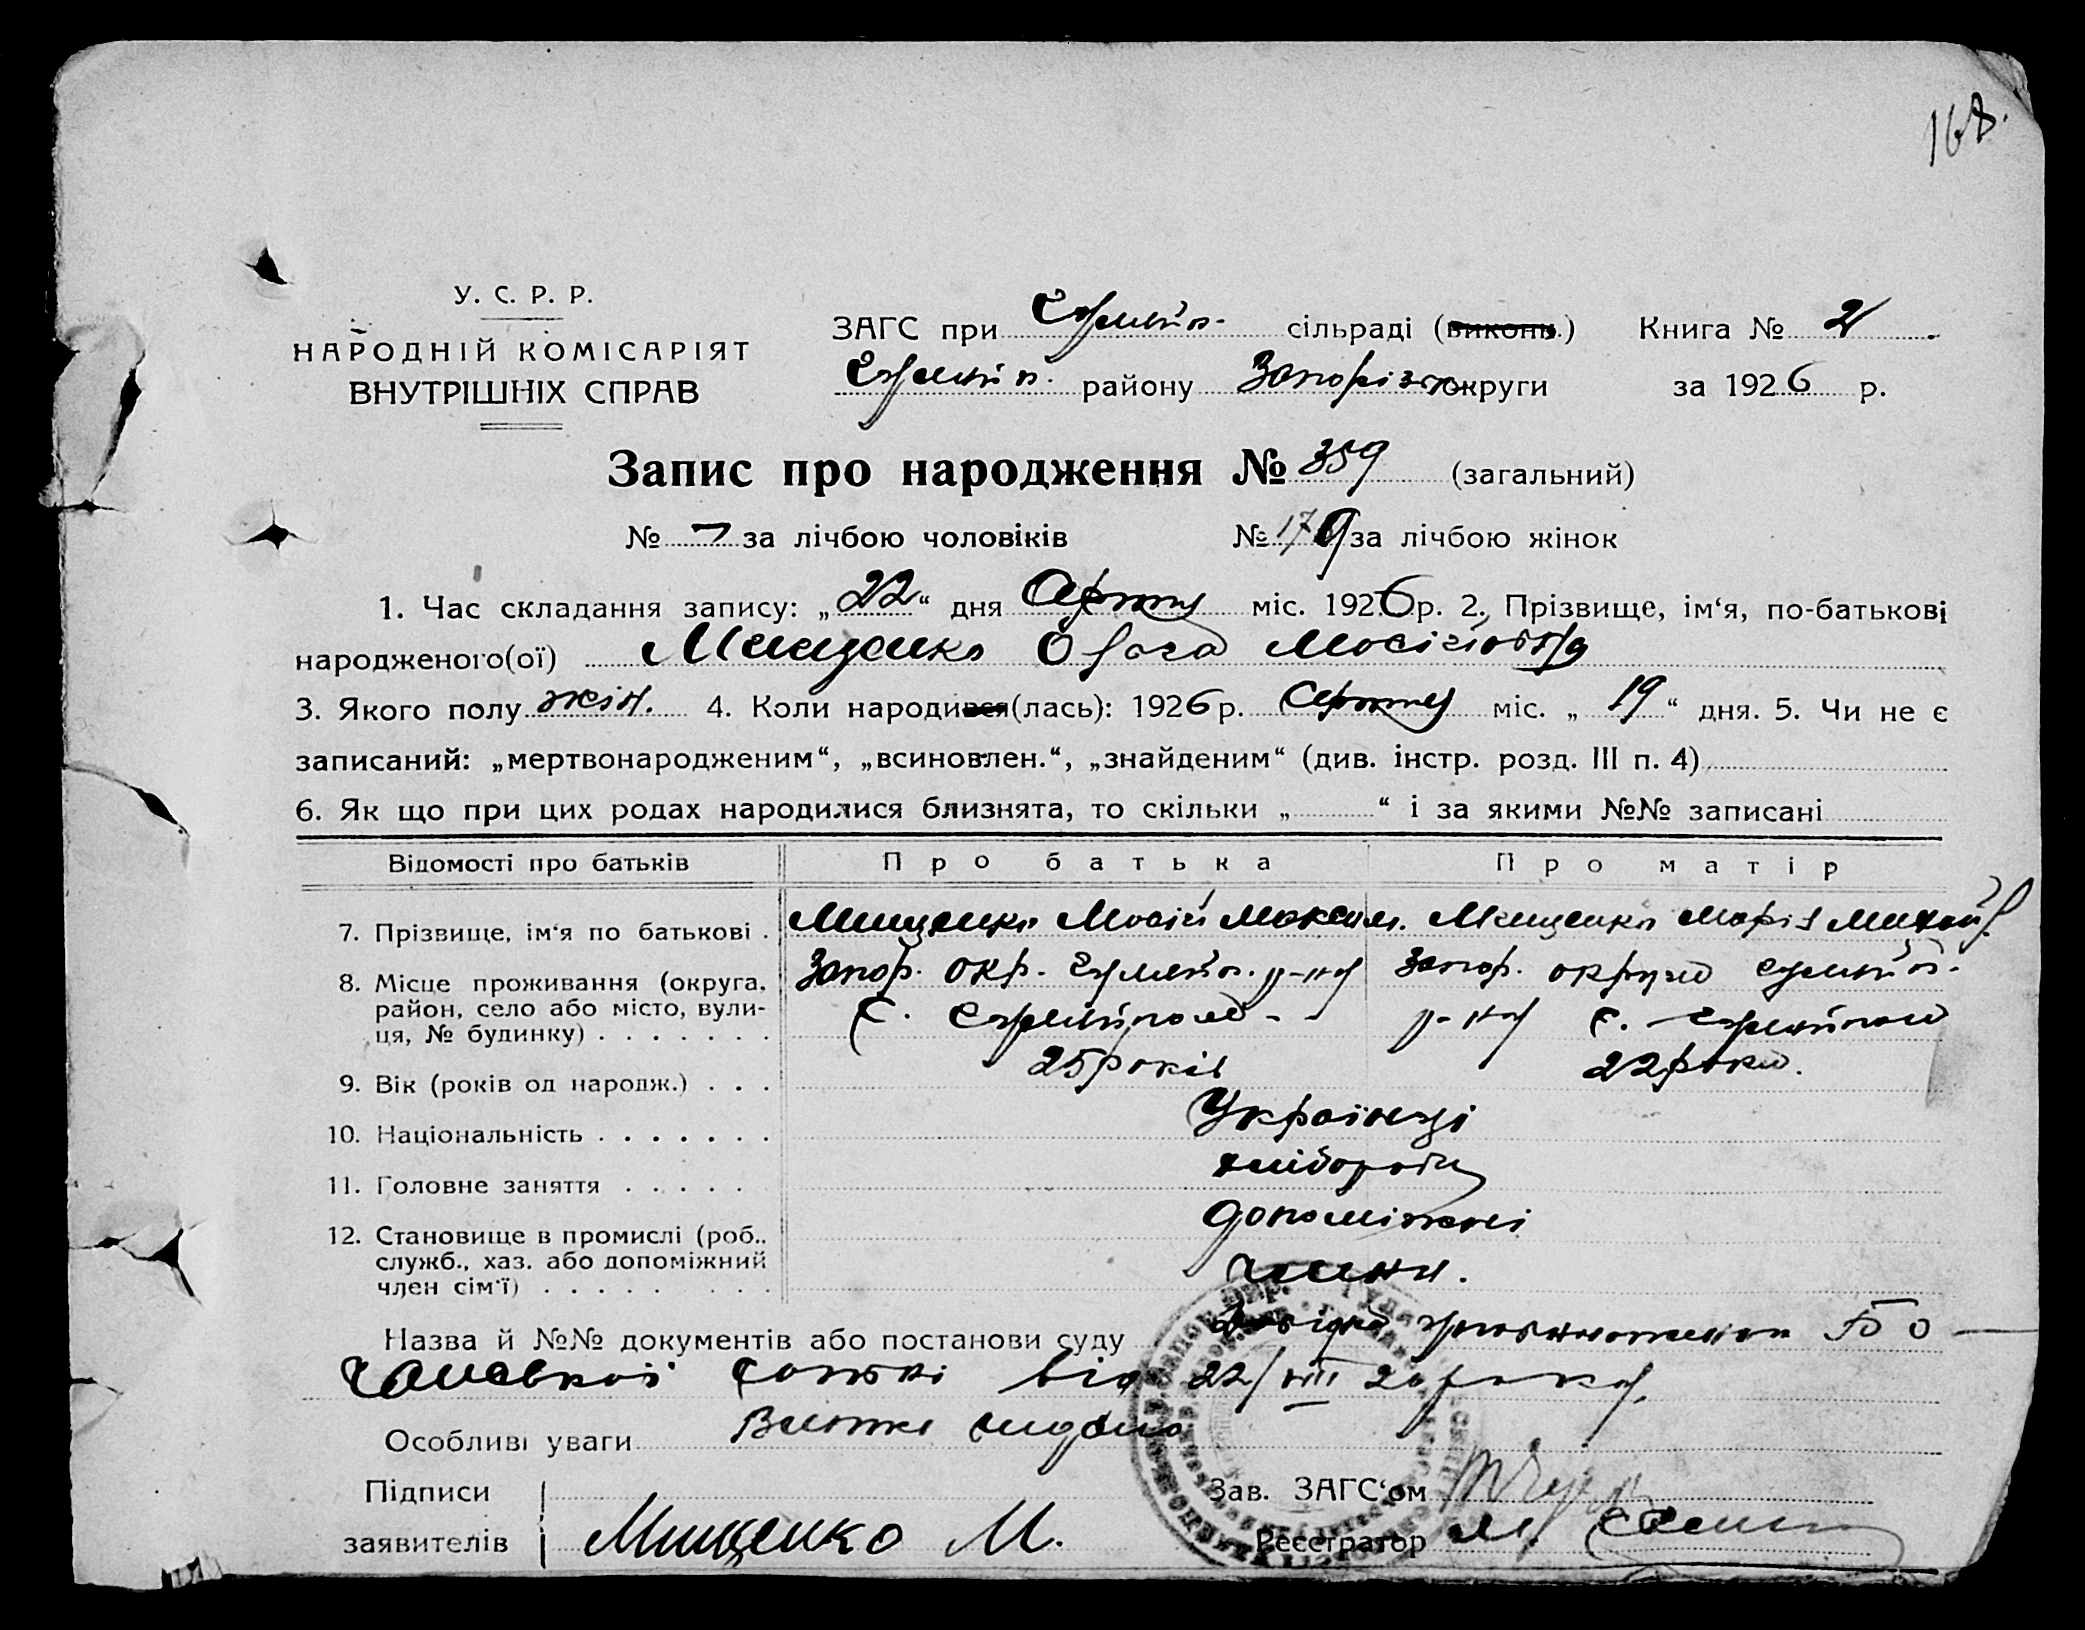 168.
У. С. Р. Р.
НАРОДНІЙ КОМІСАРІЯТ
ВНУТРІШНІХ СПРАВ
ЗАГС при Гуляйп. сільраді (виконк.) Книга № 2
Гуляйп. району Запорізьк округи за 1926 р.
Запис про народження № 359 (загальний)
№ — за лічбою чоловіків № 179 за лічбою жінок
1. Час складання запису: „22“ дня Серпня міс. 1926 р. 2. Прізвище, ім‘я, по-батькові
народженого(ої) Мищенко Мосіївна
3. Якого полу жін. 4. Коли народився(лась): 1926 р. Серпня міс. „19“ дня. 5. Чи не є
записаний: „мертвонародженим“, „всиновлен.“, „знайденим“ (див. інстр. розд. III п. 4)
6. Як що при цих родах народилися близнята, то скільки „ “ і за якими №№ записані
Відомості про батьків Про батька Про матір
7. Прізвище, ім‘я по батькові . Мищенко Мосій Максим. Мищенко Марія Михай
8. Місце проживання (округа, Запор. окр. Гуляйп. р-ну Запор. округи Гуляйп.
район, село або місто, вули- с. Гуляйполе р-ну с. Гуляйполе
ця, № будинку) . . . . . . .
9. Вік (років од народж.) . . . 25 років 22 роки.
10. Національність . . . . . . . Українці
11. Головне заняття . . . . . хлібороби
12. Становище в промислі (роб., допоміжні
служб., хаз. або допоміжний члени.
член сім‘ї) . . . . . . . .
Назва й №№ документів або постанови суду Довідка уповноваженого Бо-
чанської сотні від 22/VIII 26 року.
Особливі уваги Виписка видана
Підписи Зав. ЗАГС‘ом
заявителів Мищенко М. Реєстратор